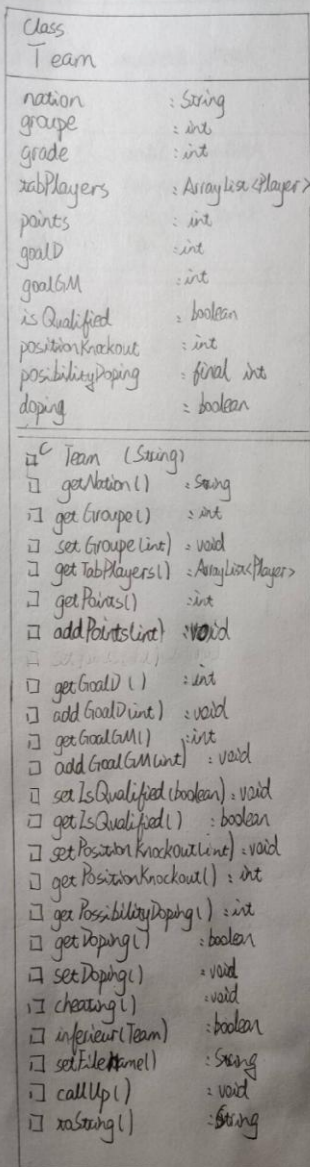 Class
Team
nation : String
groupe : int
grade : int
tabPlayers : ArrayList<Player>
points : int
goalD : int
goalGM : int
isQualified : boolean
positionKnockout : int
posibilityDoping : final int
doping : boolean
C Team (String)
getNation() : String
getGroupe() : int
setGroupe(int) : void
getTabPlayers() : ArrayList<Player>
getPoints() : int
addPoints(int) : void
getGoalD() : int
addGoalD(int) : void
getGoalGM() : int
addGoalGM(int) : void
setIsQualified(boolean) : void
getIsQualified() : boolean
setPositionKnockout(int) : void
getPositionKnockout() : int
getPossibilityDoping() : int
getDoping() : boolean
setDoping() : void
cheating() : void
inferieur(Team) : boolean
setFileName() : String
callUp() : void
toString() : String